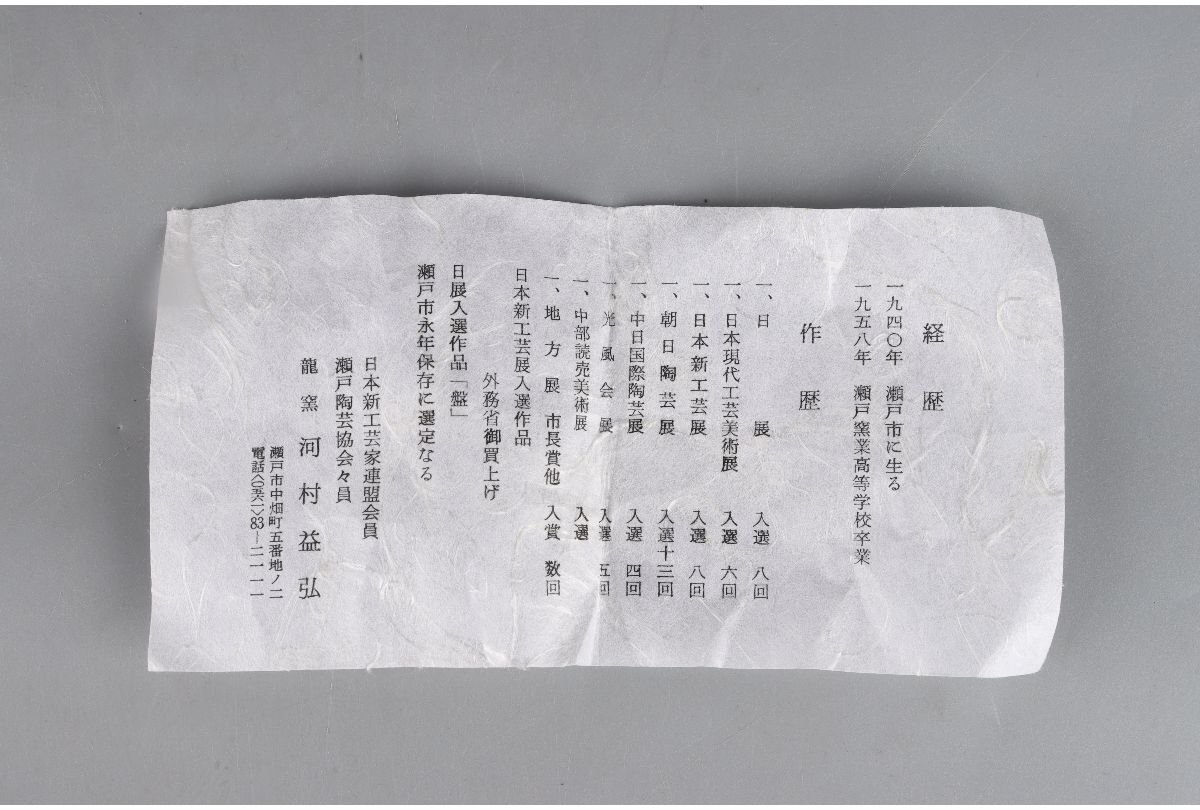 経歴
一九四〇年　瀬戸市に生る
一九五八年　瀬戸窯業高等学校卒業
作歴
一、日展　入選　八回
一、日本現代工芸美術展　入選　六回
一、日本新工芸展　入選　八回
一、朝日陶芸展　入選十三回
一、中日国際陶芸展　入選　四回
一、光風会展　入選　五回
一、中部読売美術展　入選
一、地方展　市長賞他　入賞　数回
日本新工芸展入選作品
外務省御買上げ
日展入選作品「盤」
瀬戸市永年保存に選定なる
日本新工芸家連盟会員
瀬戸陶芸協会々員
龍窯　河村益弘
瀬戸市中畑町五番地ノ二
電話〈〇五六一〉83―二一一一